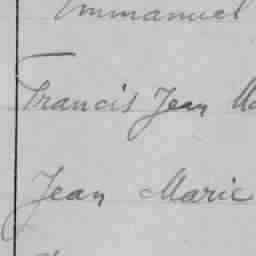 Emmanuel
Francis Jean
Jean Marie